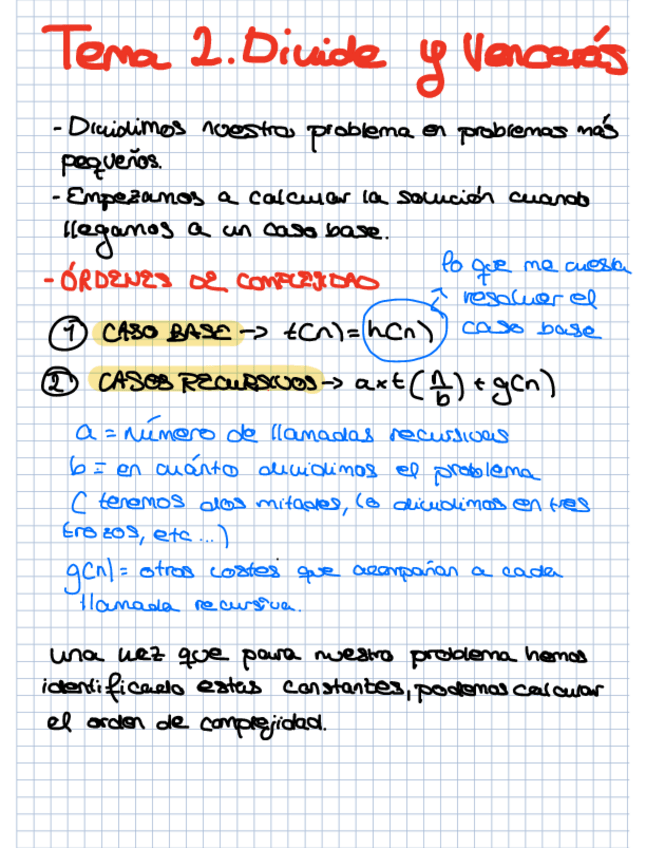 Tema 2. Divide y Vencerás
- Dividimos nuestro problema en problemas más
pequeños.
- Empezamos a calcular la solución cuando
llegamos a un caso base.
- ÓRDENES DE COMPLEJIDAD
lo que me cuesta
resolver el
caso base
1 CASO BASE -> t(n) = h(n)
2 CASOS RECURSIVOS -> a * t(n/b) + g(n)
a = número de llamadas recursivas
b = en cuánto dividimos el problema
( tenemos dos mitades, lo dividimos en tres
trozos, etc ... )
g(n) = otros costes que acompañan a cada
llamada recursiva.
una vez que para nuestro problema hemos
identificado estas constantes, podemos calcular
el orden de complejidad.